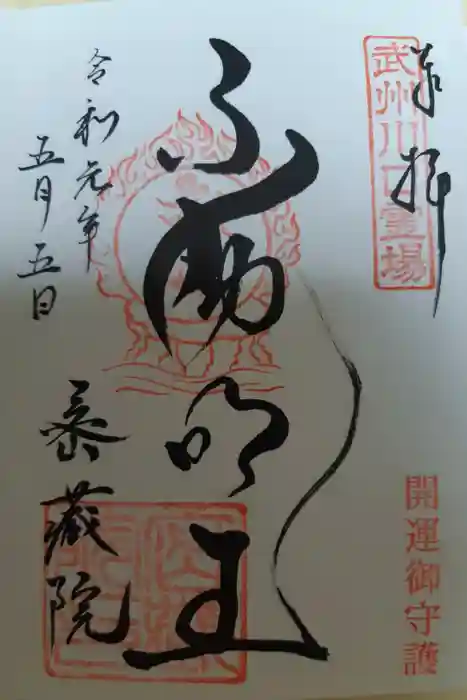 奉拝
武州川口霊場
開運御守護
不動明王
令和元年
五月五日
泰蔵院